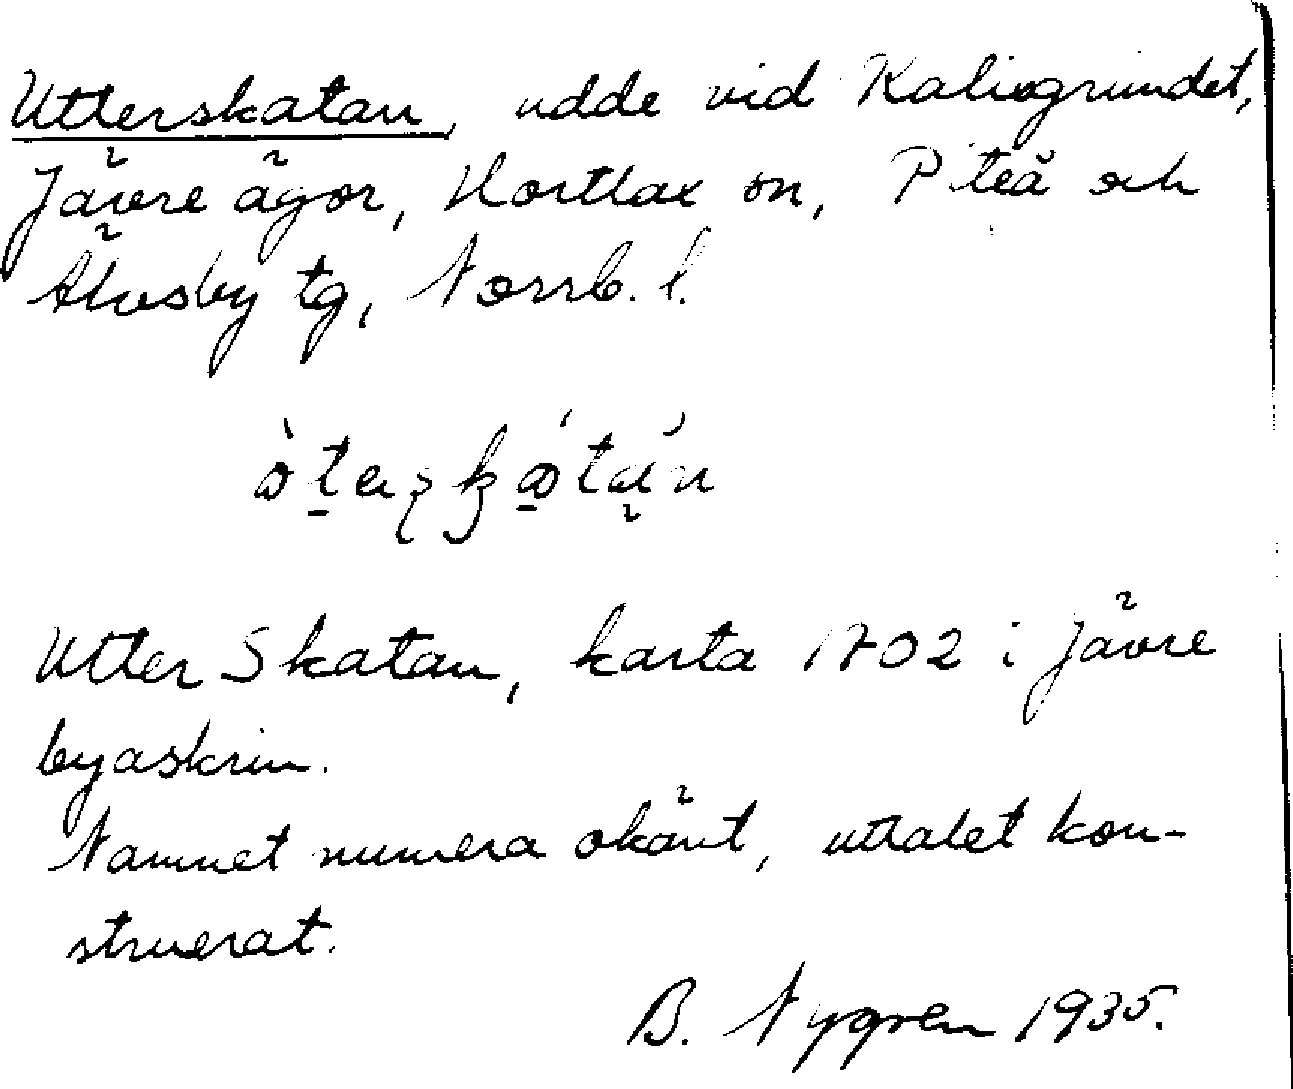 Utterskatan, udde vid Kalixgrundet,
Jävre ägor, Hortlax sn, Piteå och
Älvsby tg, Norrb. l.
Utter Skatan, karta 1702 i Jävre
byaskrin.
Namnet numera okänt, uttalet kon-
struerat.
B. Nygren 1935.